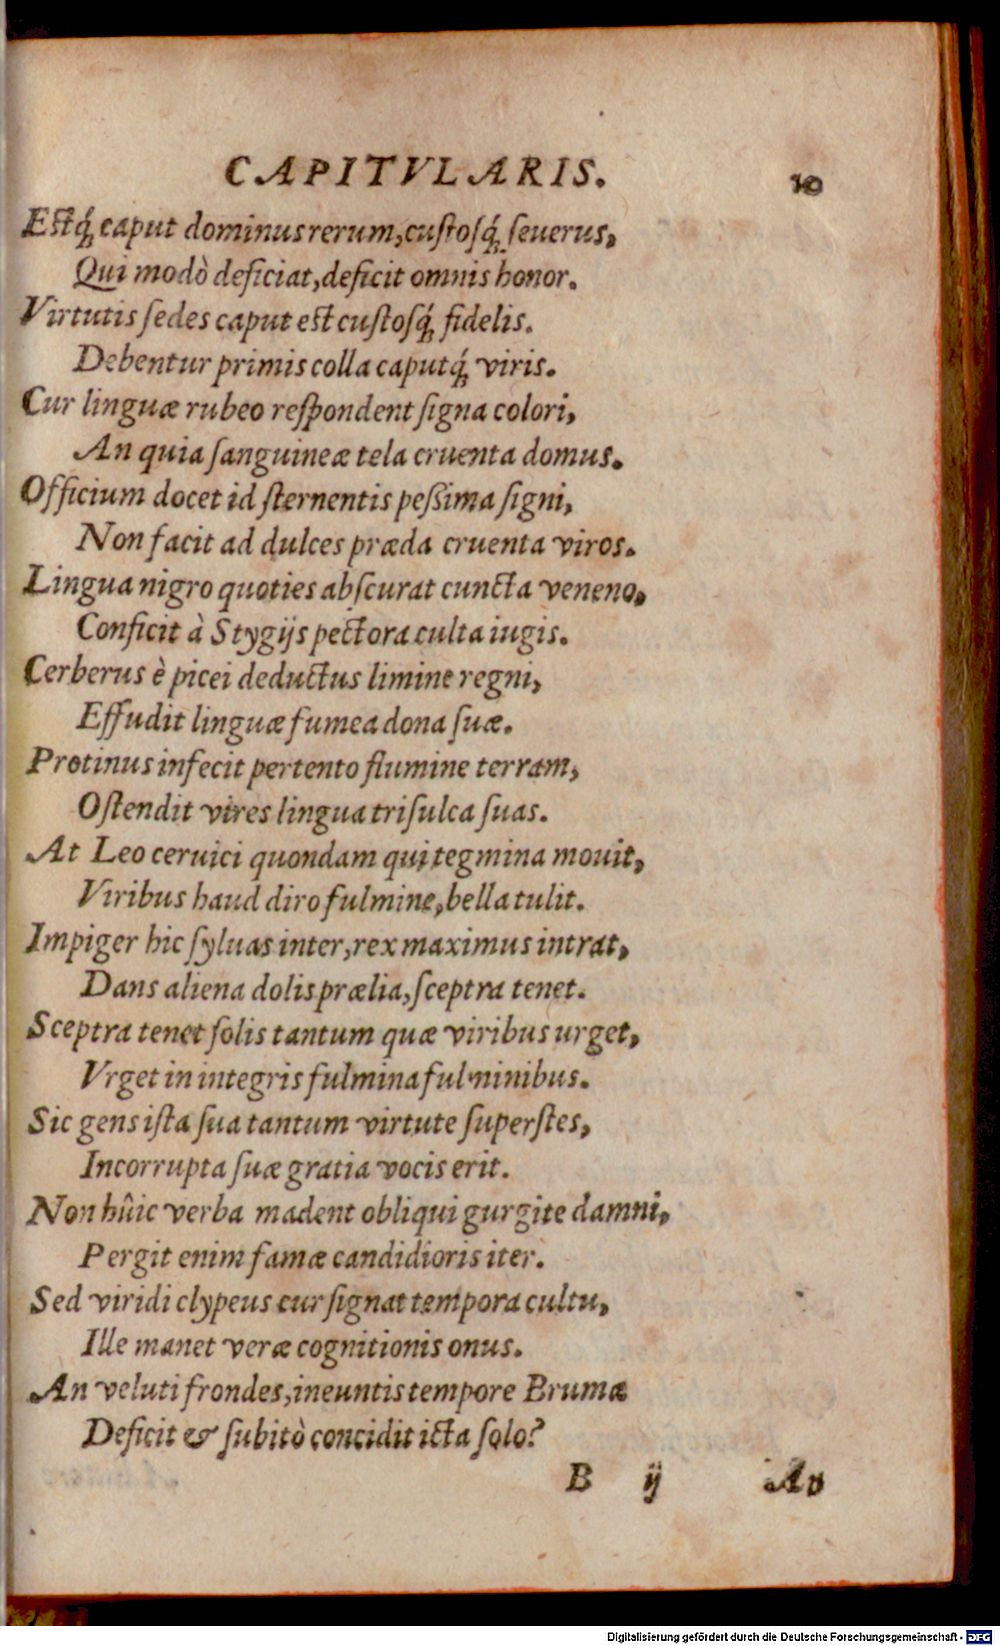 CAPITVLARIS. 10
Estq́; caput dominus rerum, custosq́; seuerus,
Qui modò deficiat, deficit omnis honor.
Virtutis sedes caput est custosq́; fidelis.
Debentur primis colla caputq́; viris.
Cur linguæ rubeo respondent signa colori,
An quia sanguineæ tela cruenta domus.
Officium docet id sternentis pessima signi,
Non facit ad dulces præda cruenta viros.
Lingua nigro quoties abscurat cuncta veneno,
Conficit à Stygijs pectora culta iugis.
Cerberus è picei deductus limine regni,
Effudit linguæ fumea dona suæ.
Protinus infecit pertento flumine terram,
Ostendit vires lingua trisulca suas.
At Leo ceruici quondam qui tegmina mouit,
Viribus haud diro fulmine, bella tulit.
Impiger hic syluas inter, rex maximus intrat,
Dans aliena dolis prælia, sceptra tenet.
Sceptra tenet solis tantum quæ viribus urget,
Vrget in integris fulmina fulminibus.
Sic gens ista sua tantum virtute superstes,
Incorrupta suæ gratia vocis erit.
Non hûic verba madent obliqui gurgite damni,
Pergit enim famæ candidioris iter.
Sed viridi clypeus cur signat tempora cultu,
Ille manet veræ cognitionis onus.
An veluti frondes, ineuntis tempore Brumæ
Deficit & subitò concidit icta solo?
B ij Au
Digitalisierung gefördert durch die Deutsche Forschungsgemeinschaft - DFG